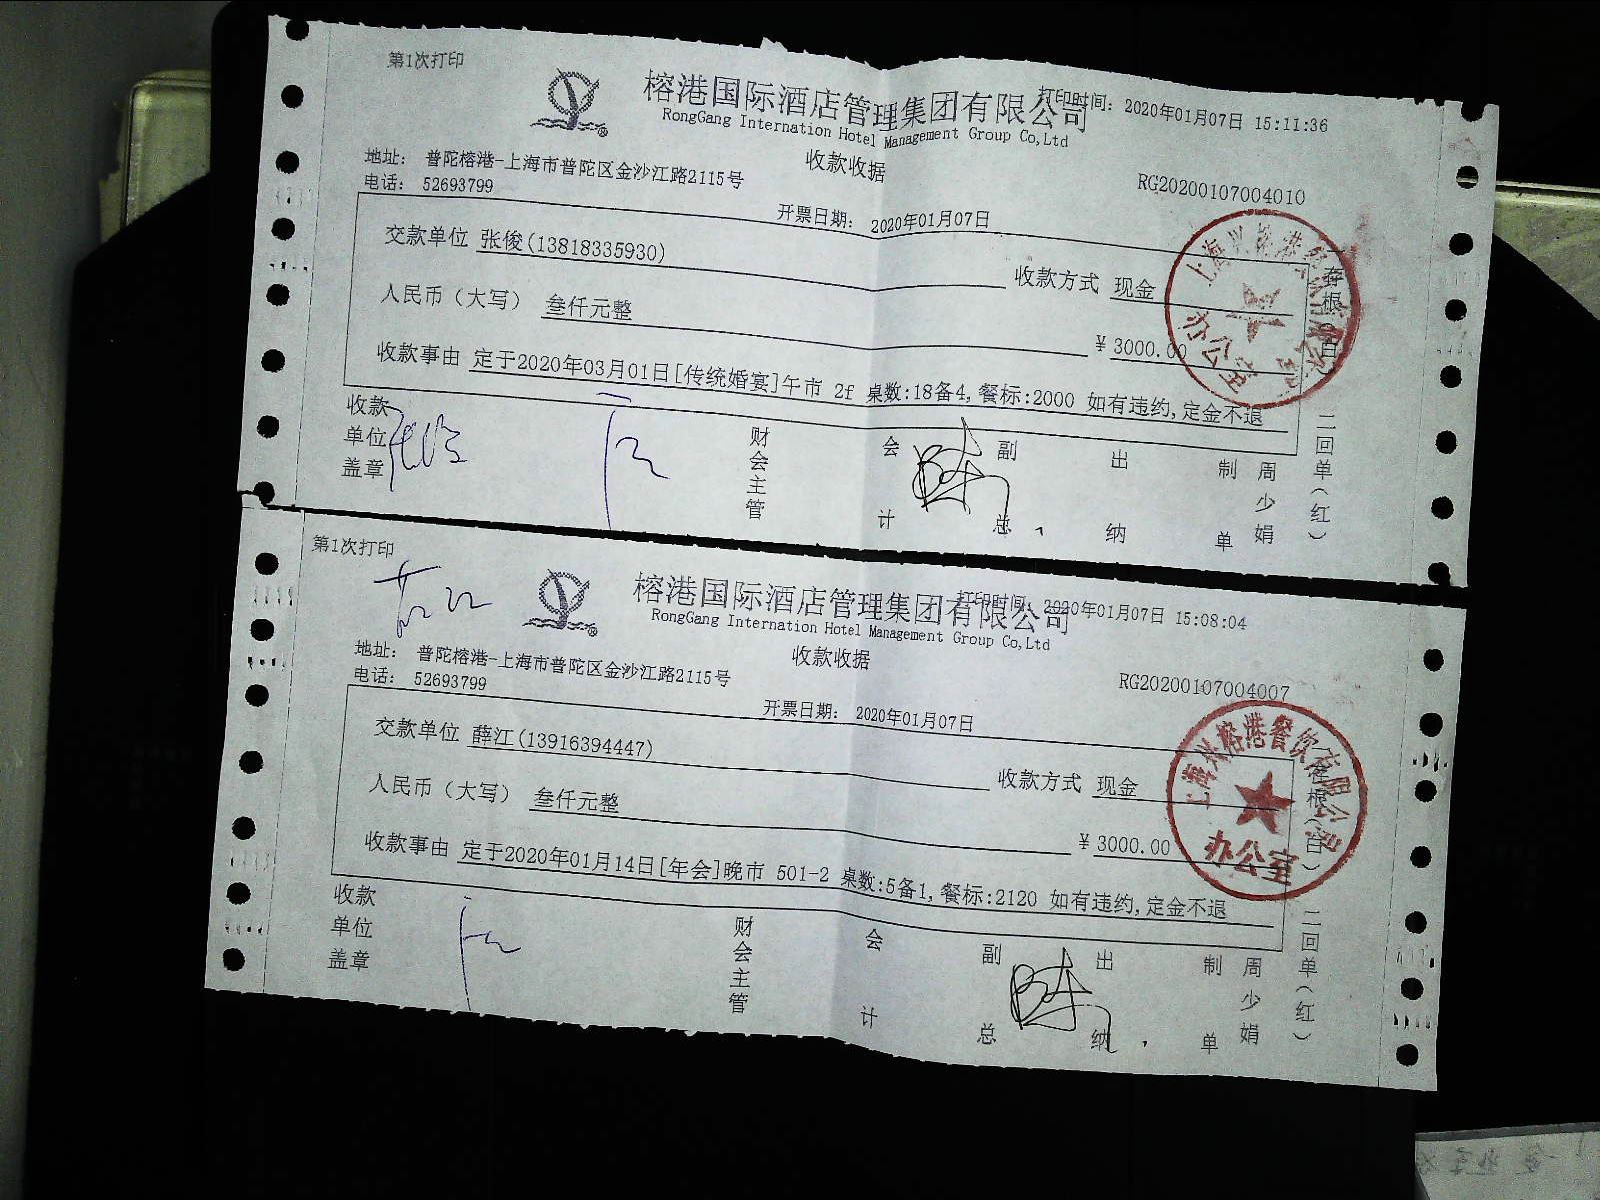 第1次打印
榕港国际酒店管理集团有限公司
打印时间: 2020年01月07日 15:11:36
RongGang Internation Hotel Management Group Co,Ltd
地址: 普陀榕港-上海市普陀区金沙江路2115号
收款收据
电话: 52693799
RG20200107004010
开票日期: 2020年01月07日
交款单位 张俊(13818335930)
收款方式 现金
人民币（大写） 叁仟元整
￥3000.00
收款事由 定于2020年03月01日[传统婚宴]午市 2f 桌数:18备4,餐标:2000 如有违约,定金不退
收款单位盖章
财会主管
会计
副总
出纳
制单
周少娟
存根(白)
二回单(红)
办公室
第1次打印
榕港国际酒店管理集团有限公司
打印时间: 2020年01月07日 15:08:04
RongGang Internation Hotel Management Group Co,Ltd
地址: 普陀榕港-上海市普陀区金沙江路2115号
收款收据
电话: 52693799
RG20200107004007
开票日期: 2020年01月07日
交款单位 薛江(13916394447)
收款方式 现金
人民币（大写） 叁仟元整
￥3000.00
收款事由 定于2020年01月14日[年会]晚市 501-2 桌数:5备1,餐标:2120 如有违约,定金不退
收款单位盖章
财会主管
会计
副总
出纳
制单
周少娟
存根(白)
二回单(红)
上海兴榕港餐饮有限公司
办公室